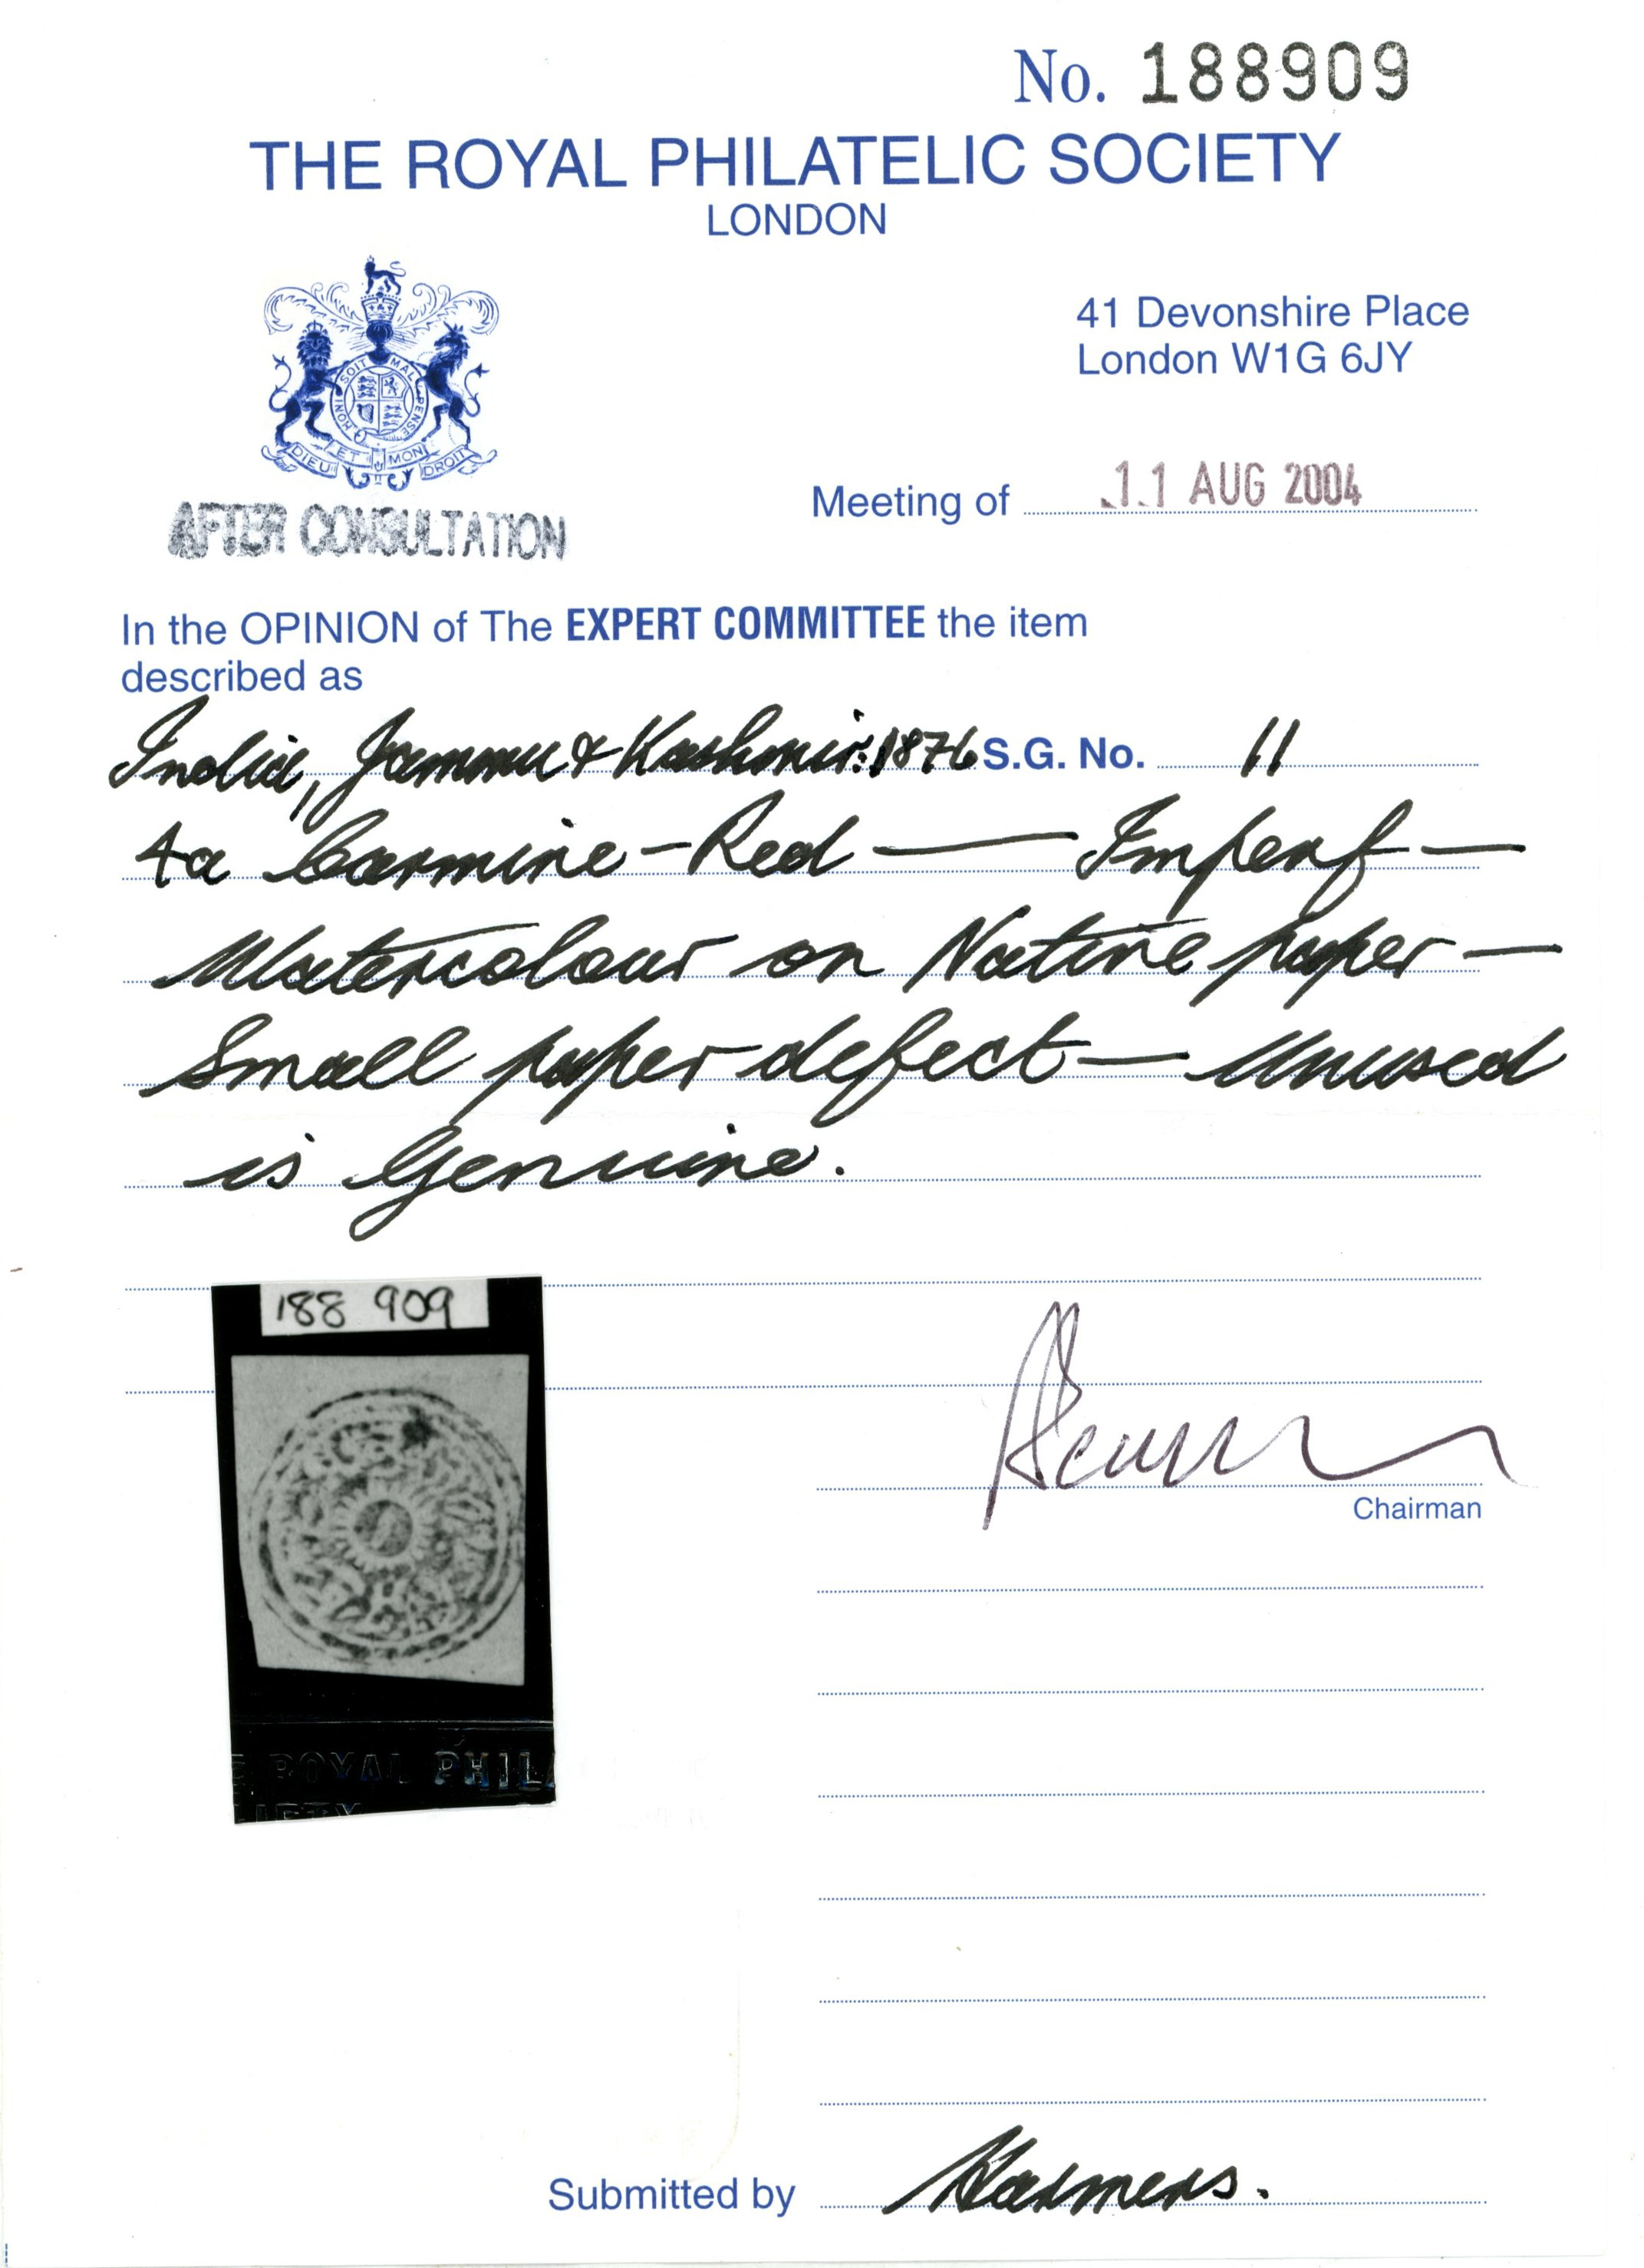 No. 188909
THE ROYAL PHILATELIC SOCIETY
LONDON
41 Devonshire Place
London W1G 6JY
HONI SOIT MAL PENSE
DIEU ET MON DROIT
AFTER CONSULTATION
Meeting of 11 AUG 2004
In the OPINION of The EXPERT COMMITTEE the item
described as
India, Jammu & Kashmir: 1876 S.G. No. 11
4a Carmine-Red — Imperf —
Watercolour on Native paper —
Small paper defect — Unused
is Genuine.
188 909
E ROYAL PHILA
IETY
Chairman
Submitted by Harmers.